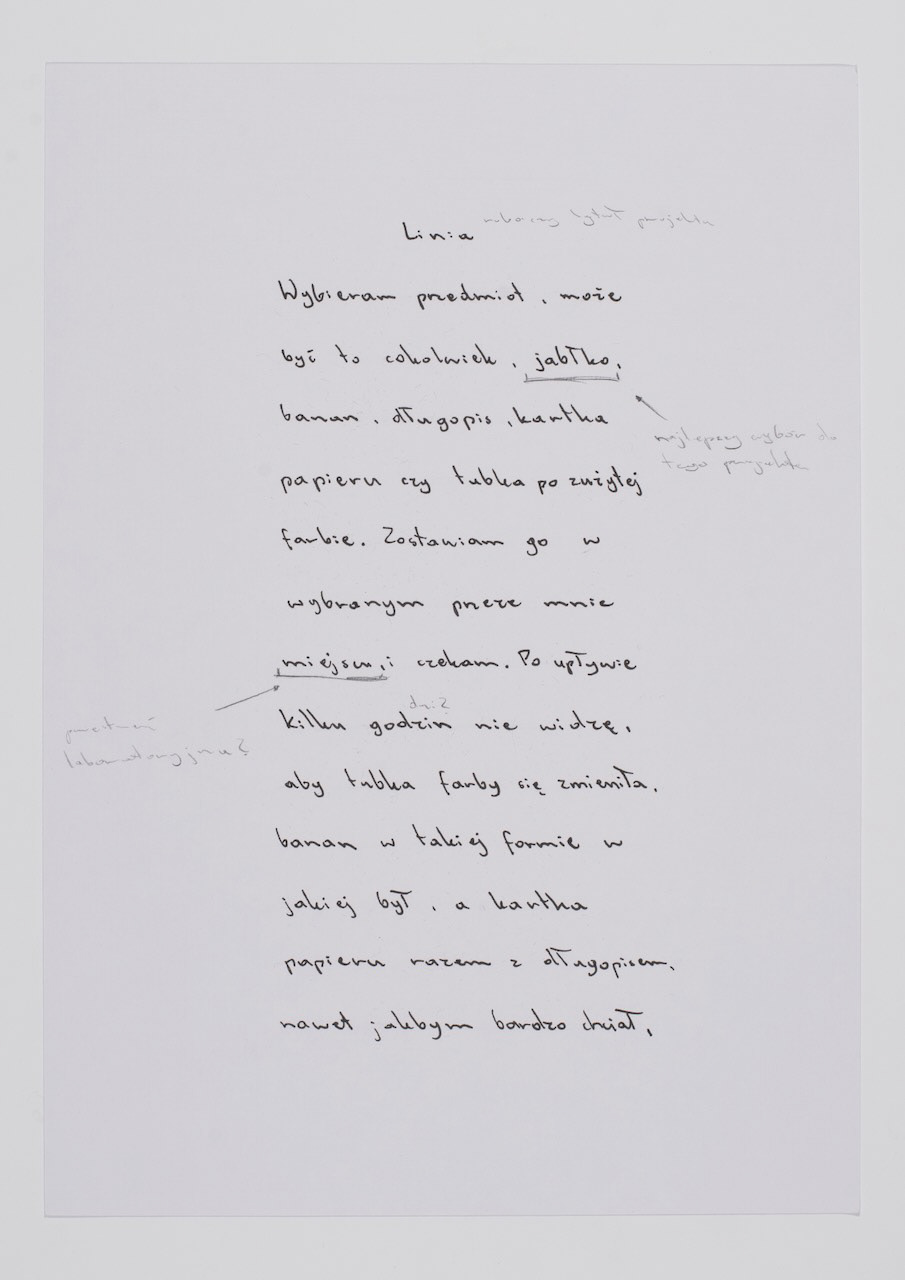 Linia roboczy tytuł projektu
Wybieram przedmiot, może
być to cokolwiek, jabłko,
banan, długopis, kartka
najlepszy wybór do
tego projektu
papieru czy tubka po zużytej
farbie. Zostawiam go w
wybranym przeze mnie
miejscu, i czekam. Po upływie
dni?
kilku godzin nie widzę,
przestrzeń
laboratoryjna?
aby tubka farby się zmieniła,
banan w takiej formie w
jakiej był, a kartka
papieru razem z długopisem,
nawet jakbym bardzo chciał,